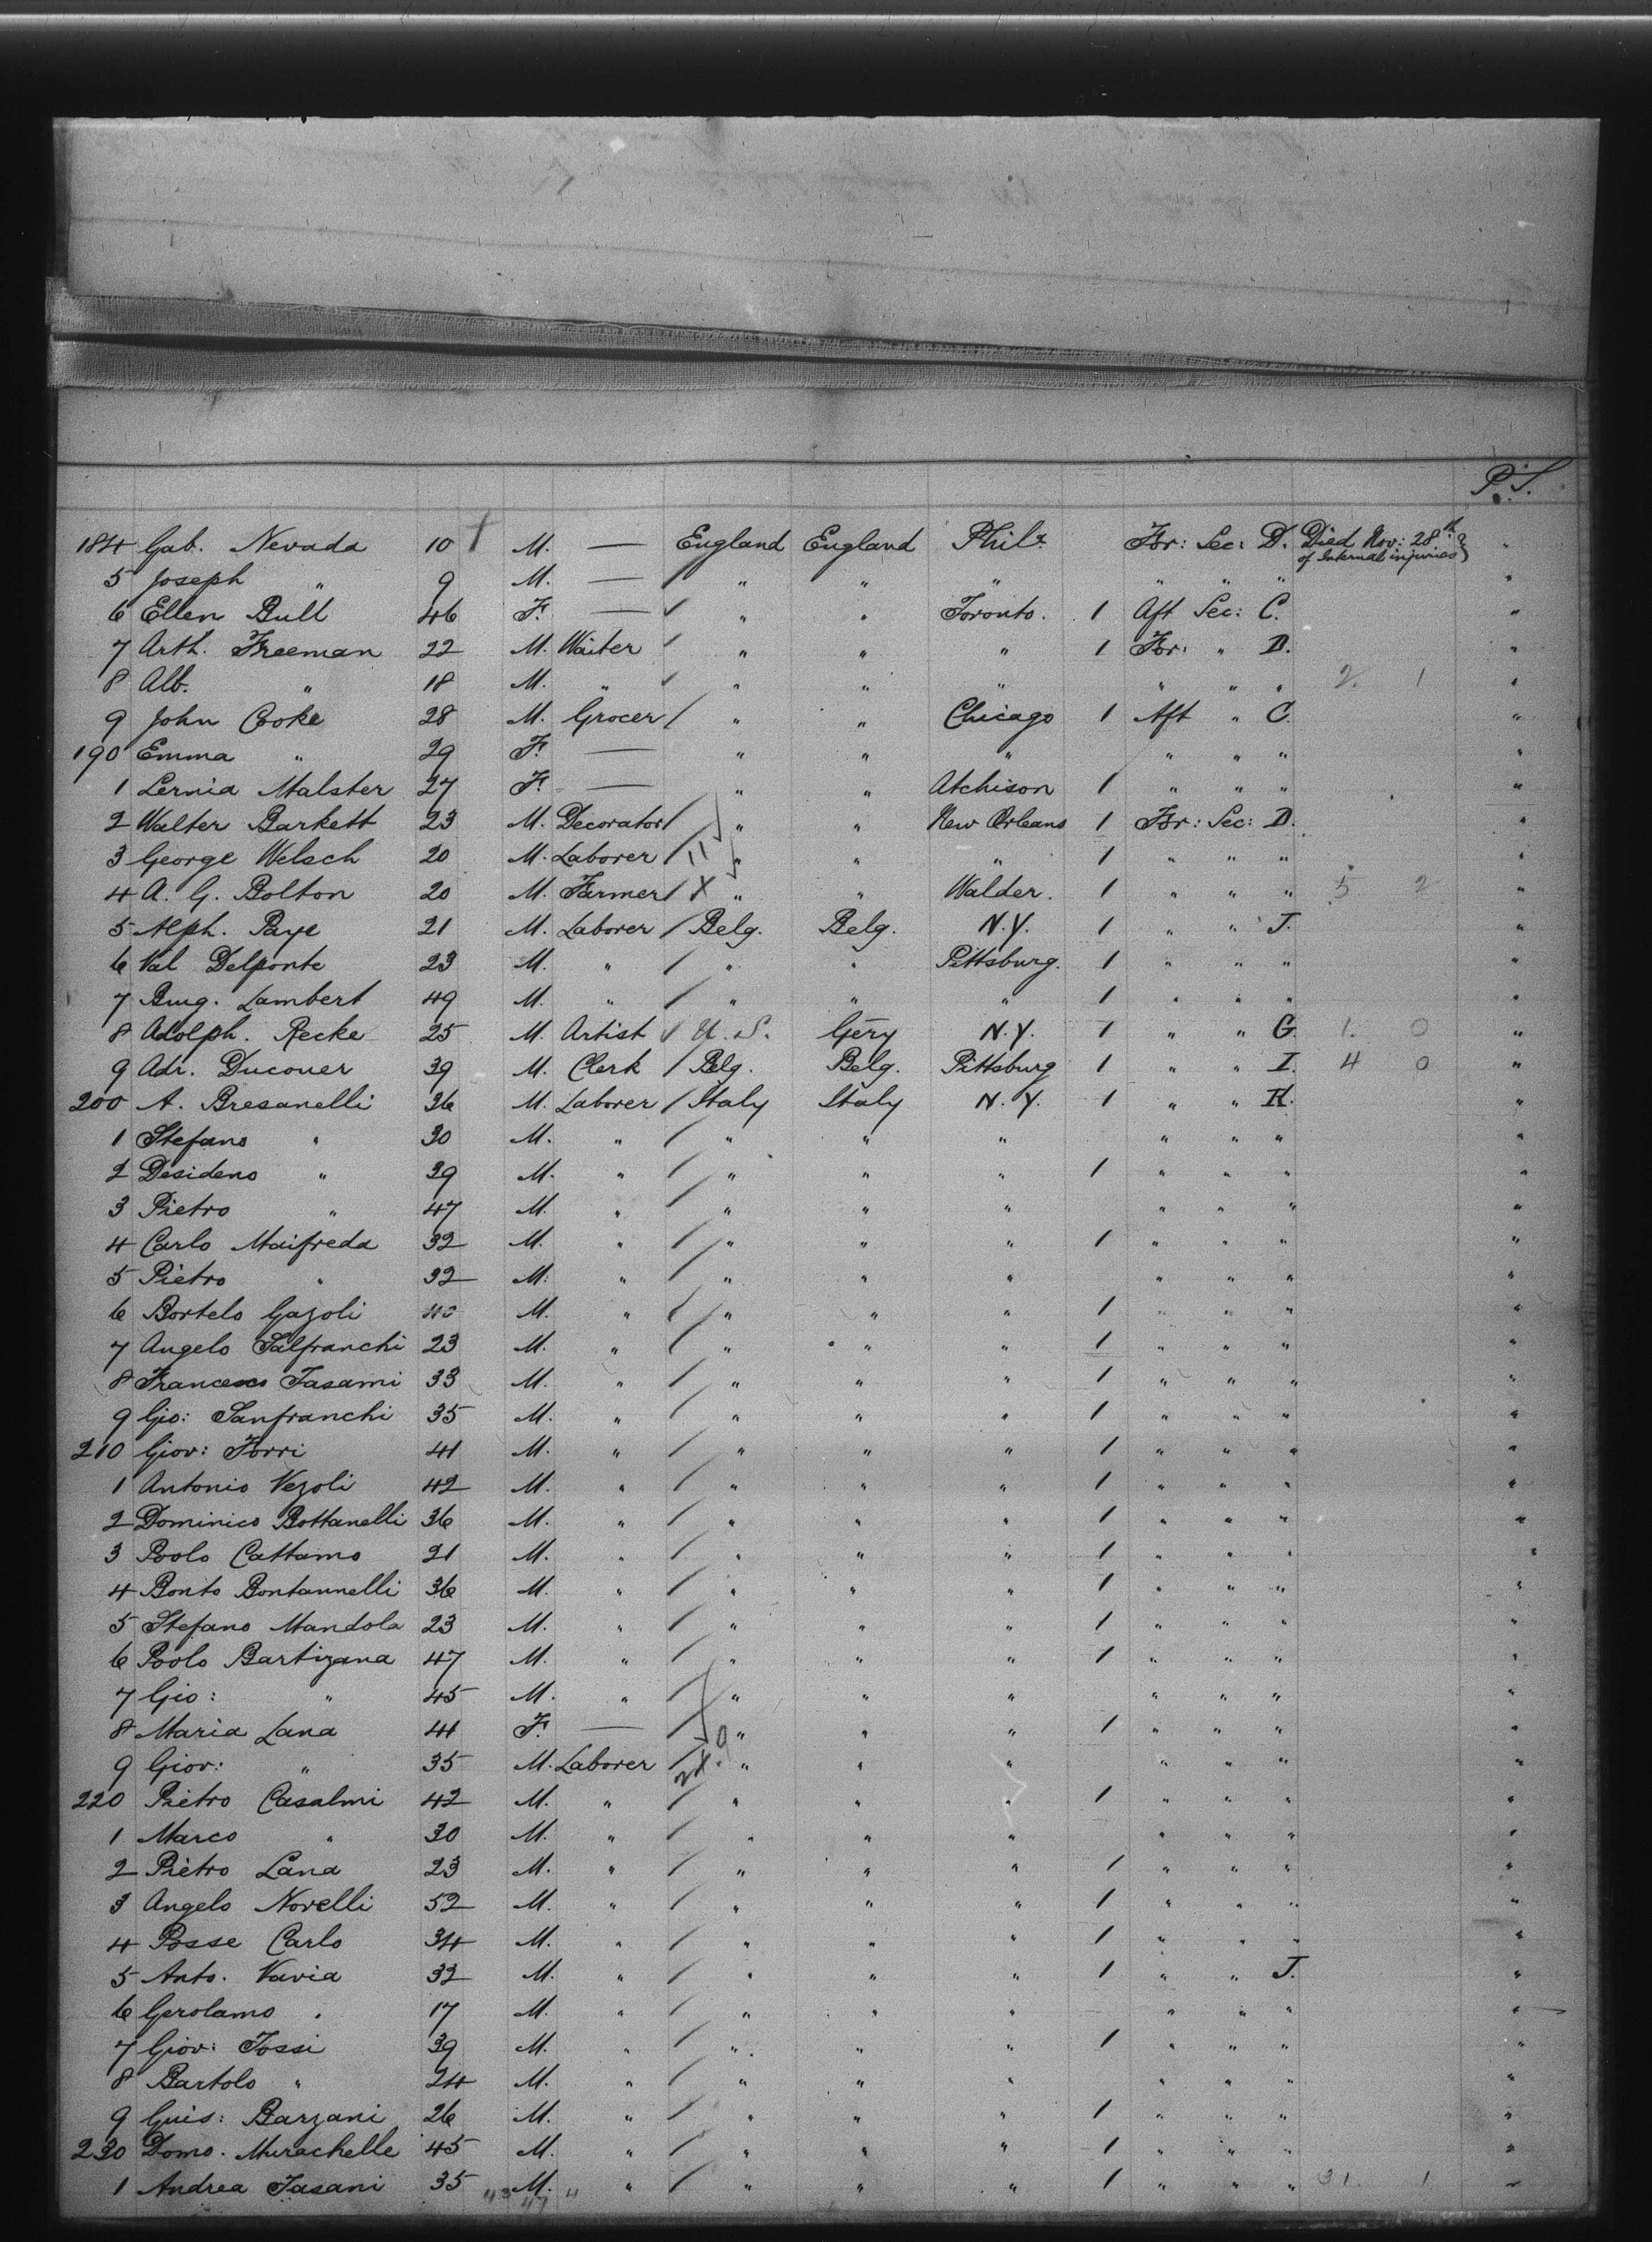 P.S.
184 Gab. Nevada 10 † M. — England England Phila. For: Sec: D. Died Nov: 28th of Internal injuries "
5 Joseph " 9 M. — " " " " " " "
6 Ellen Bull 46 F. — " " Toronto. 1 Aft Sec: C. "
7 Arth. Freeman 22 M. Waiter " " " 1 For: " D. "
8 Alb. " 18 M. " " " " " " " 2. 1 "
9 John Cooke 28 M. Grocer " " Chicago 1 Aft " C. "
190 Emma " 29 F. — " " " " " " "
1 Lernia Malster 27 F. — " " Atchison 1 " " " "
2 Walter Barkett 23 M. Decorator " " New Orleans 1 For: Sec: D. "
3 George Welsch 20 M. Laborer 11 " " " 1 " " " "
4 A. G. Bolton 20 M. Farmer X " " Walder. 1 " " " 5 2 "
5 Alph. Paye 21 M. Laborer Belg. Belg. N.Y. 1 " " J. "
6 Val Delponte 23 M. " " " Pittsburg. 1 " " " "
7 Aug. Lambert 49 M. " " " " 1 " " " "
8 Adolph. Recke 25 M. Artist U.S. Gery N.Y. 1 " " G. 1. 0 "
9 Adr. Ducouer 39 M. Clerk Belg. Belg. Pittsburg 1 " " I. 4 0 "
200 A. Bresanelli 36 M. Laborer Italy Italy N.Y. 1 " " K. "
1 Stefano " 30 M. " " " " " " " "
2 Desideno " 39 M. " " " " 1 " " " "
3 Pietro " 47 M. " " " " " " " "
4 Carlo Maifreda 32 M. " " " " 1 " " " "
5 Pietro " 32 M. " " " " " " " "
6 Bortelo Gazoli 40 M. " " " " 1 " " " "
7 Angelo Salfranchi 23 M. " " " " 1 " " " "
8 Francesco Tasami 33 M. " " " " 1 " " " "
9 Gio: Sanfranchi 35 M. " " " " 1 " " " "
210 Giov: Torri 41 M. " " " " 1 " " " "
1 Antonio Vezoli 42 M. " " " " 1 " " " "
2 Dominico Bottanelli 36 M. " " " " 1 " " " "
3 Poolo Cattamo 21 M. " " " " 1 " " " "
4 Bonto Bontannelli 36 M. " " " " 1 " " " "
5 Stefano Mandola 23 M. " " " " 1 " " " "
6 Poolo Bartizana 47 M. " " " " 1 " " " "
7 Gio: " 45 M. " " " " " " " "
8 Maria Lana 41 F. — " " " 1 " " " "
9 Giov: " 35 M. Laborer " " " " " " "
220 Pietro Casalmi 42 M. " " " " 1 " " " "
1 Marco " 30 M. " " " " " " " "
2 Pietro Lana 23 M. " " " " 1 " " " "
3 Angelo Norelli 52 M. " " " " 1 " " " "
4 Posse Carlo 34 M. " " " " 1 " " " "
5 Anto. Varia 32 M. " " " " 1 " " J. "
6 Gerolamo " 17 M. " " " " " " " "
7 Giov: Tossi 39 M. " " " " 1 " " " "
8 Bartolo " 24 M. " " " " " " " "
9 Guis: Barzani 26 M. " " " " 1 " " " "
230 Domo. Murachelle 45 M. " " " " 1 " " " "
1 Andrea Tasani 35 M. " " " " 1 " " " 31. 1 "